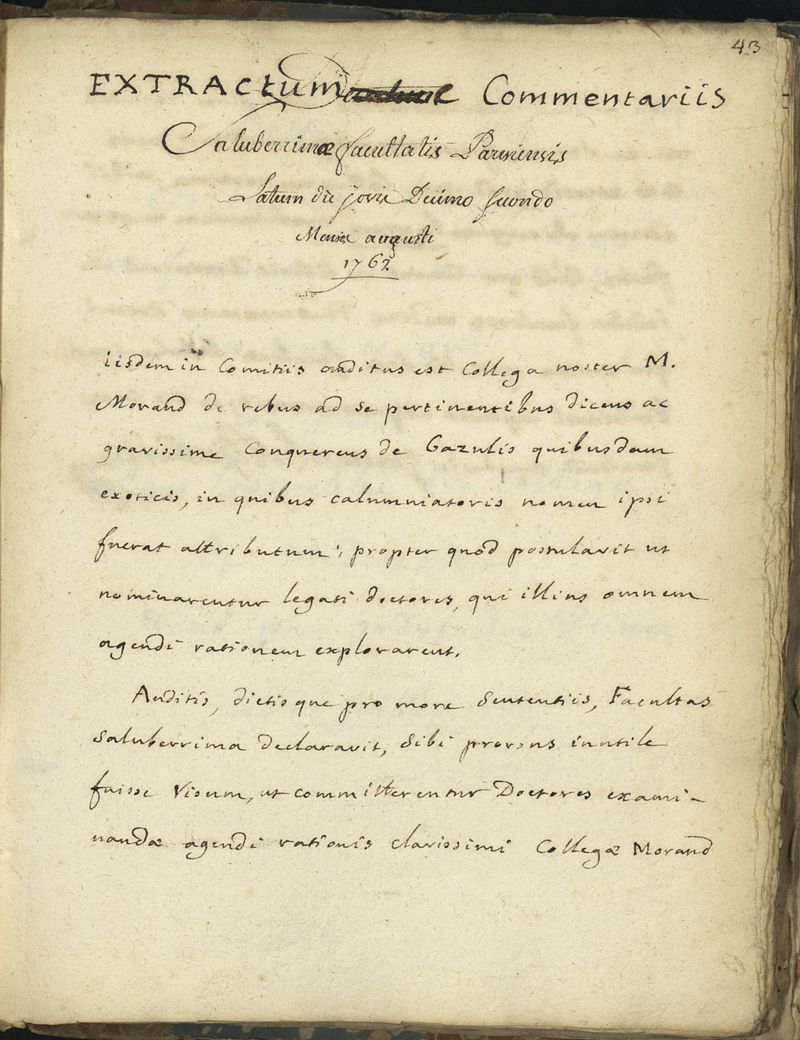 43
EXTRACtum e Commentariis
Saluberrimæ facultatis Parisiensis
Latum die jovis Decimo secondo
Mensis augusti
1762
iisdem in Comitiis auditus est Collega noster M.
Morand de rebus ad se pertinentibus dicens ac
gravissime Conquerens de Gazulis quibusdam
exoticis, in quibus calumniatoris nomen ipsi
fuerat attributum; propter quod postulavit ut
nominarentur legati doctores, qui illius omnem
agendi rationem explorarent.
Auditis, dictisque pro more Sententiis, Facultas
Saluberrima declaravit, Sibi prorsus inutile
fuisse Visum, ut committerentur Doctores exami-
nandæ agendi rationis clarissimi Collegæ Morand